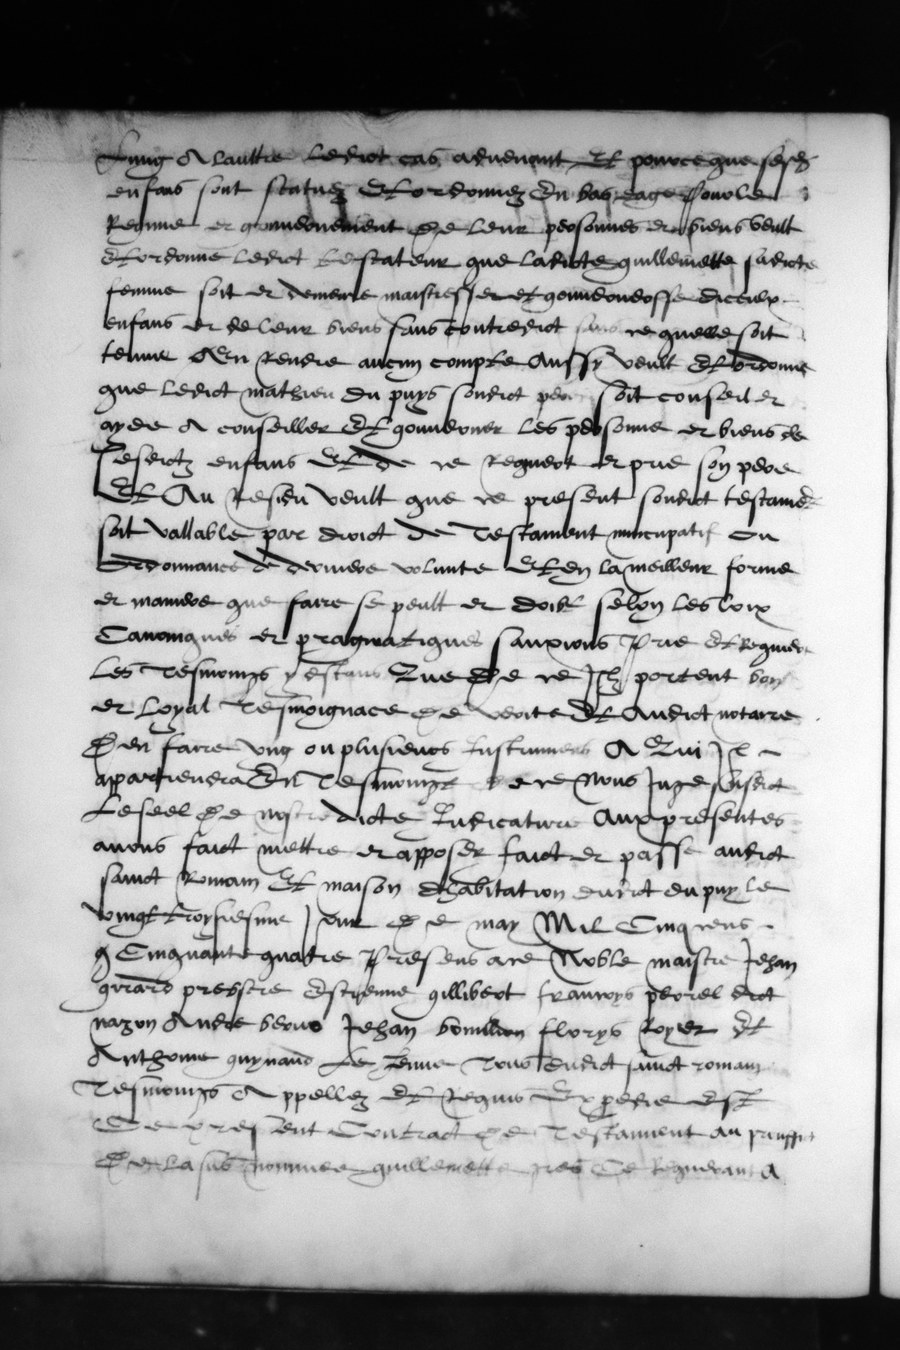 Lung A Laultre Ledict cas advenant Et pource que sesd
enfans sont statuez Et ordonnez En bas eage Pour le
Regime et gouvernement De Leur personnes et biens veult
Et ordonne Ledict testateur que Ladicte guillemette sadicte
femme soit et demeure maistresse et gouverneresse diceulx
enfans et de Leur biens sans contredict sans ce quelle soit
tenue A En Rendre aucun compte Aussy veult Et ordonne
que Ledict mathieu du puys sondict pere soit conseil et
ayde A conseiller Et gouverner Les personne et biens de
sesdictz enfans Et De ce Requert et prie son pere
Et Au Residu veult que ce present sondict testament
soit vallable par droict De Testament nuncupatif Ou
Ordonnance de derniere volunte Et En La meilleur forme
et maniere que faire se peult et doibt selon Les loix
Canoniques et pragmatiques sanxions Prie Et Requiert
Les Tesmoings y estans Que De ce Ilz portent bon
et Loyal Tesmoignaige De verite Et Audict notaire
Den faire ung ou plusieurs Instrumens A Qui Il
appartiendra En Tesmoing De ce Nous Juge susdict
Le seel De nostre dicte Judicature Aux presentes
avons faict mettre et apposer faict et passe audict
sainct Romain Et maison dhabitation dudict du puy le
vingt troysiesme Jour De may Mil Cinq cens
Cinquante quatre Presens a ce Noble maistre Jehan
girard prebstre Estienne gillibert francoys borel dict
nazon Andre Jehan bouillon florys Royer Et
Anthoine guynand Le Jeune Tous dudict sainct romain
Tesmoings Appellez Et Requis Expedie Est
Ce present Contract De Testament au prouffit
De La sus nommee guillemette Ce Requerant A